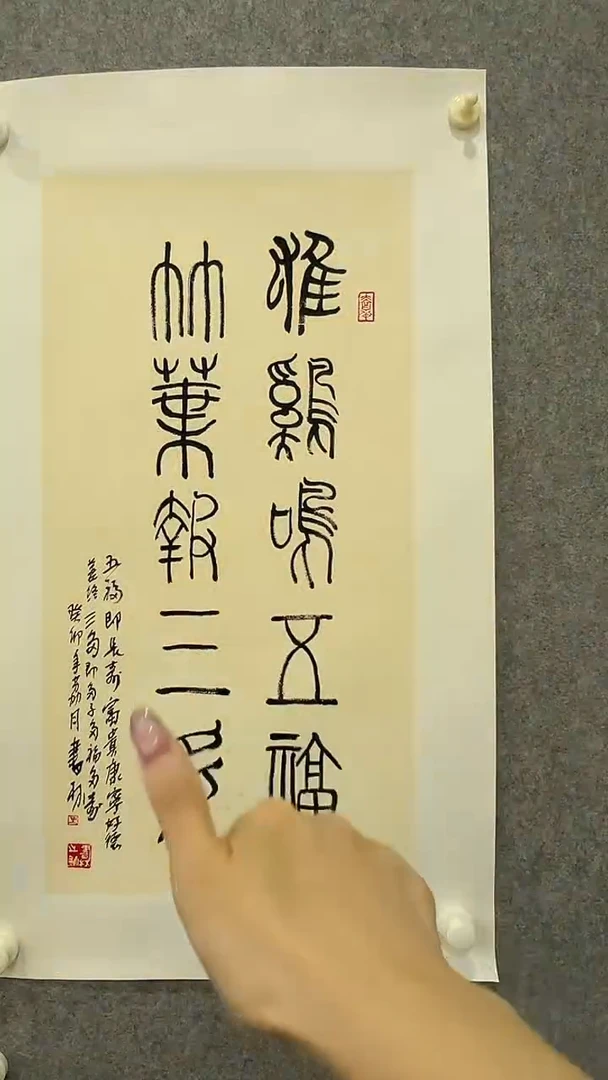 雄鷄鳴五福
竹葉報三多
五福即長寿富貴康寧好德
善終三多即多子多福多寿
癸卯年荔月書